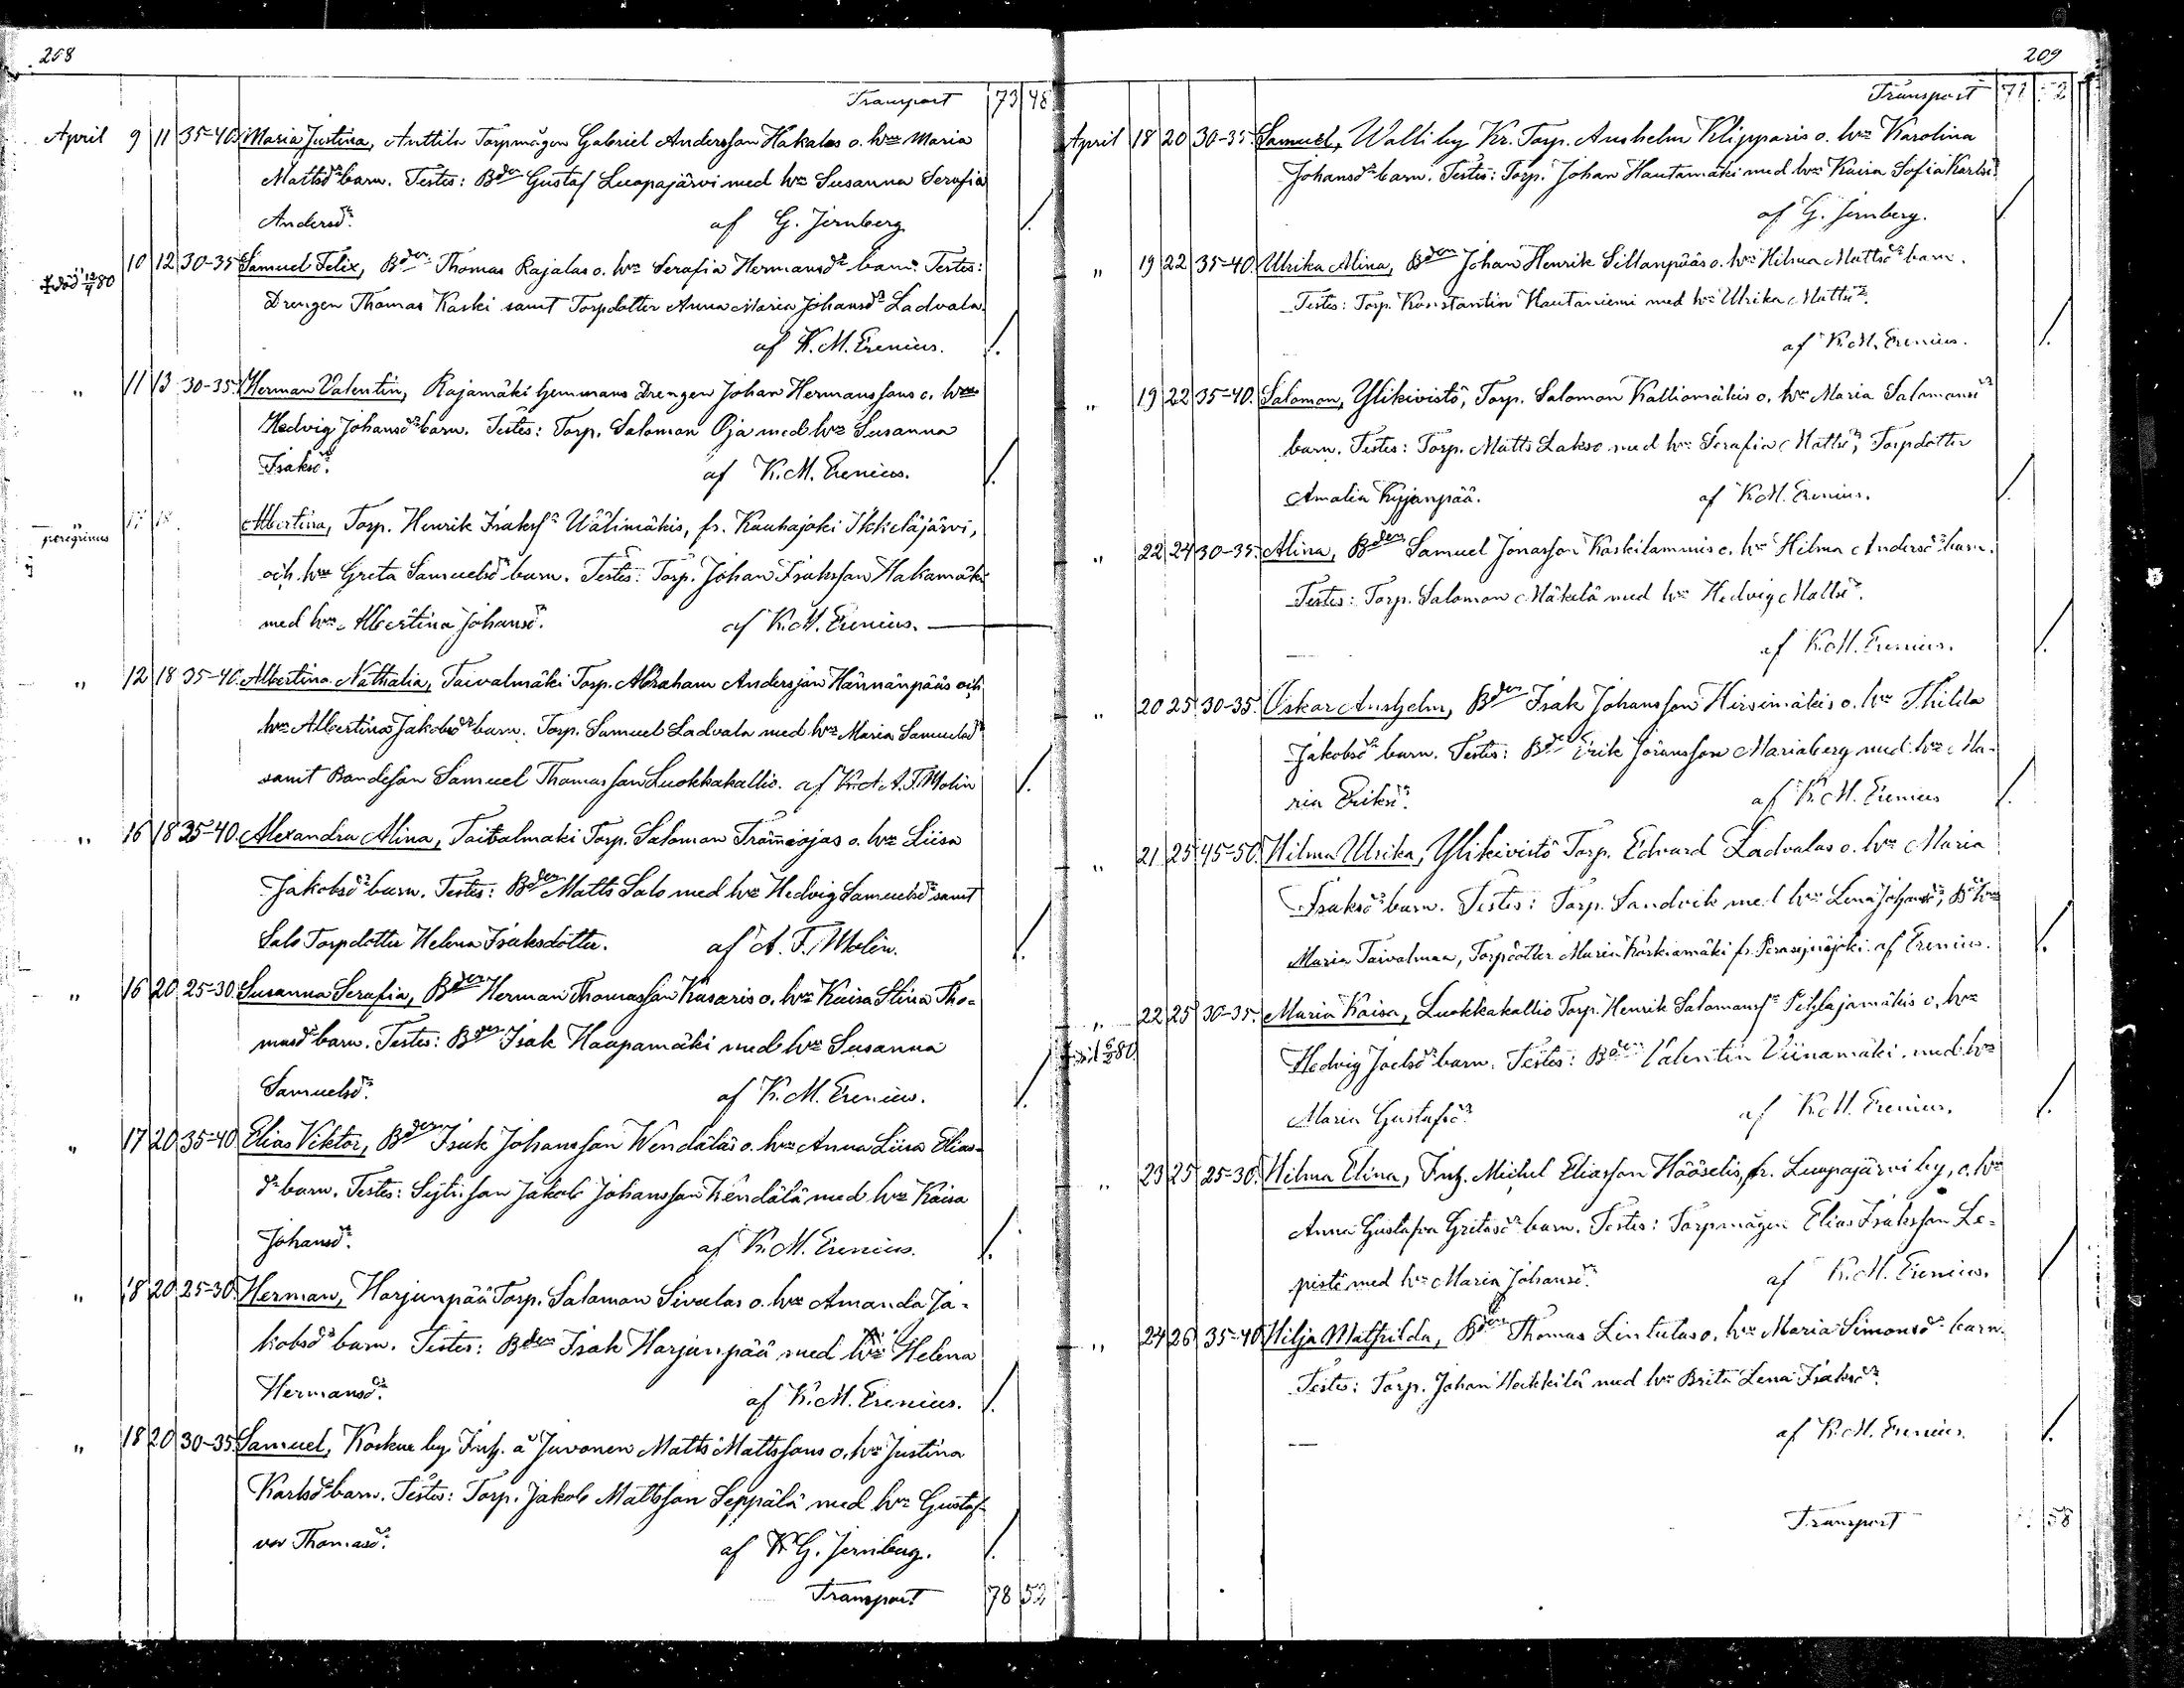 258
Transport 73 48
April 9 11 35-40 Maria Justina, Anttila Torpmågen Gabriel Andersson Hakalas o. hrs Maria
Mattsdr barn. Testes: Bden Gustaf Luopajärvi med hr Susanna Serafia
Andersdr. af G. Jernberg
10 12 30-35 Samuel Felix, Bden Thomas Rajalas o. hrs Serafia Hermansdr barn. Testes:
död 12/4 80
Drengen Thomas Kaski samt Torpdotter Anna Maria Johansdr Ladvala.
af K. M. Erenius.
" 11 13 30-35 Herman Valentin, Rajamäki hemmans drengen Johan Hermanssons o. hrs
Hedvig Johansdr barn. Testes: Torp. Salomon Oja med hr Susanna
Isaksdr. af K. M. Erenius.
peregrinus
17 18 Albertina, Torp. Henrik Isakss Wälimäkis, fr. Kauhajoki Ikkeläjärvi,
och hrs Greta Samuelsdr barn. Testes: Torp. Johan Isaksson Hakamäki
med hrs Albertina Johansdr. af K. M. Erenius.
" 12 18 35-40 Albertina Nathalia, Taivalmäki Torp. Abraham Andersson Hännänpääs och
hrs Albertina Jakobsdr barn. Torp. Samuel Ladvala med hrs Maria Samuelsdr
samt Bondeson Samuel Thomasson Luokkakallio. af A. F. Molin
" 16 18 35-40. Alexandra Alina, Taivalmaki Torp. Salomon Trämeojas o. hrs Liisa
Jakobsdr barn. Testes: Bden Matts Salo med hrs Hedvig Samuelsdr samt
Salo Torpdotter Helena Isaksdotter. af A. F. Molin.
" 16 20 25-30 Susanna Serafia, Bden Herman Thomasson Kusaris o. hrs Kaisa Stina Tho-
masdr barn. Testes: Bden Isak Haapamäki med hrs Susanna
Samuelsdr. af K. M. Erenius.
" 17 20 35-40 Elias Viktor, Bden Isak Johansson Wendäläs o. hrs Anna Liisa Elias-
dr barn. Testes: Sytn. son Jakob Johansson Kendälä med hrs Kaisa
Johansdr. af K. M. Erenius.
" 18 20 25-30 Herman, Harjunpää Torp. Salomon Sivulas o. hrs Amanda Ja-
kobsdr barn. Testes: Bden Isak Harjunpää med hrs Helena
Hermansdr. af K. M. Erenius.
" 18 20 30-35 Samuel, Koskue by Inh. å Juvonen Matts Mattssons o. hrs Justina
Karlsdr barn. Testes: Torp. Jakob Mattsson Seppälä med hrs Gustaf-
va Thomasdr. af G. Jernberg.
Transport 78 52
209
Transport
April 18 20 30-35 Samuel, Walli by Kr. Torp. Anshelm Klipparis o. hrs Karolina
Johansdr barn. Testes: Torp. Johan Hautamäki med hrs Kaisa Sofia Karlsd.
af G. Jernberg.
" 19 22 35-40. Ulrika Alina, Bden Johan Henrik Sillanpääs o. hrs Hilma Mattsdr barn.
Testes: Torp. Konstantin Hautaniemi med hrs Ulrika Mattsdr.
af K. M. Erenius.
" 19 22 35-40. Salomon, Ylikivistö, Torp. Salomon Kalliomäkis o. hrs Maria Salomonsdr
barn. Testes: Torp. Matts Lakso med hrs Serafia Mattsdr, Torpdotter
Amalia Kyjanpää. af K. M. Erenius.
" 22 24 30-35. Alina, Bden Samuel Jonasson Kaskilammis o. hrs Hilma Andersdr barn.
Testes: Torp. Salomon Mäkelä med hrs Hedvig Mattsdr.
af K. M. Erenius.
" 20 25 30-35. Oskar Anshelm, Bden Isak Johansson Hirvimäkis o. hrs Thilda
Jakobsdr barn. Testes: Bden Erik Göransson Mariaberg med hrs Ma-
ria Eriksdr. af K. M. Erenius
" 21 25 45-50. Hilma Ulrika, Ylikivistö Torp. Edvard Ladvalas o. hrs Maria
Isaksdr barn. Testes: Torp. Sandvik med hrs Lena Johansdr, Bdehrs
Maria Taivalmaa, Torpdotter Maria Koskiamäki fr. Peraseinäjoki. af Erenius.
" 22 25 30-35. Maria Kaisa, Luokkakallio Torp. Henrik Salomonss Pihlajamäkis o. hrs
Hedvig Joelsdr barn. Testes: Bden Valentin Viinamäki med hrs
Maria Gustafsdr. af K. M. Erenius.
" 23 25 25-30. Hilma Elina, Inh. Michel Eliasson Hööselis, fr. Luopajärvi by, o. hrs
Anna Gustafva Gretasdr barn. Testes: Torpmågen Elias Isaksson Le-
pistö med hrs Maria Johansdr. af K. M. Erenius.
" 24 26 35-40 Hilja Mathilda, Bden Thomas Lintulas o. hrs Maria Simonsdr barn.
Testes: Torp. Johan Heikkilä med hrs Brita Lena Isaksdr.
af K. M. Erenius.
Transport 58